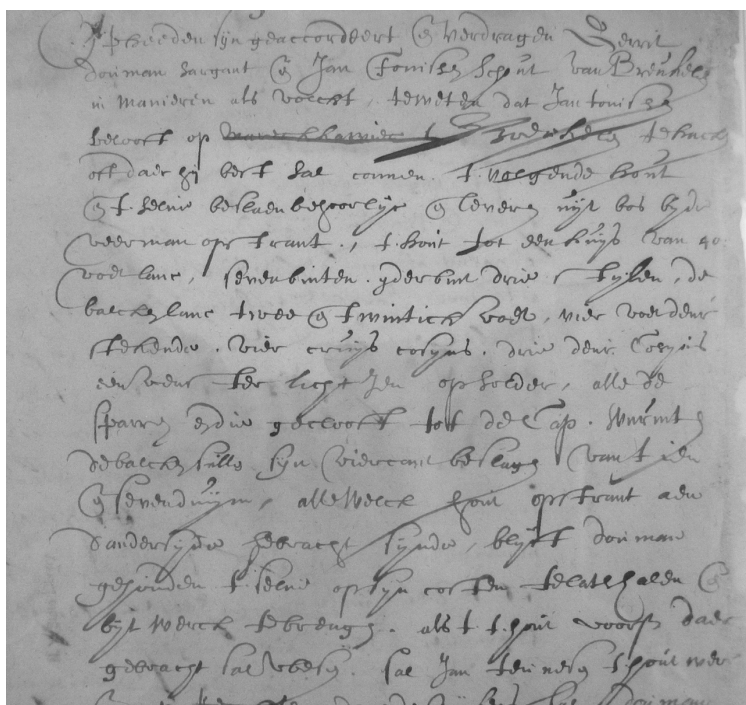 Op heeden syn geaccordeert en verdragen Gerrit
Douman Sargant en Jan Tonissen Schout van Breukelen
in manieren als volcht, te weten dat Jan tonissen
belooft op Breukelen te hacken
oft daer hij best sal connen. t. volgende hout
en t. selvie beslaen behoorlijc en leveren uyt bos byde
veerman op strant., t. hout tot een huys van 40
voet lanc, seven binten. yder bint drie stylen, de
balcken lanc twee en twintich voet, vier voet deur
stekende. vier cruys cosyns. drie deur Cosyns
een venster licht op solder, alle de
sparren endie geclooft tot de Cap.
de balcken sullen syn viercant beslagen van tien
en seven duym, alle welck hout op strant aen
dander syde gebracht synde, blyft Douman
gehouden t. selvie op syn costen te laten halen en
byt werck te brengen. als t. t. hout voorsz daer
gebracht sal wesen. sal Jan teunesen t. hout